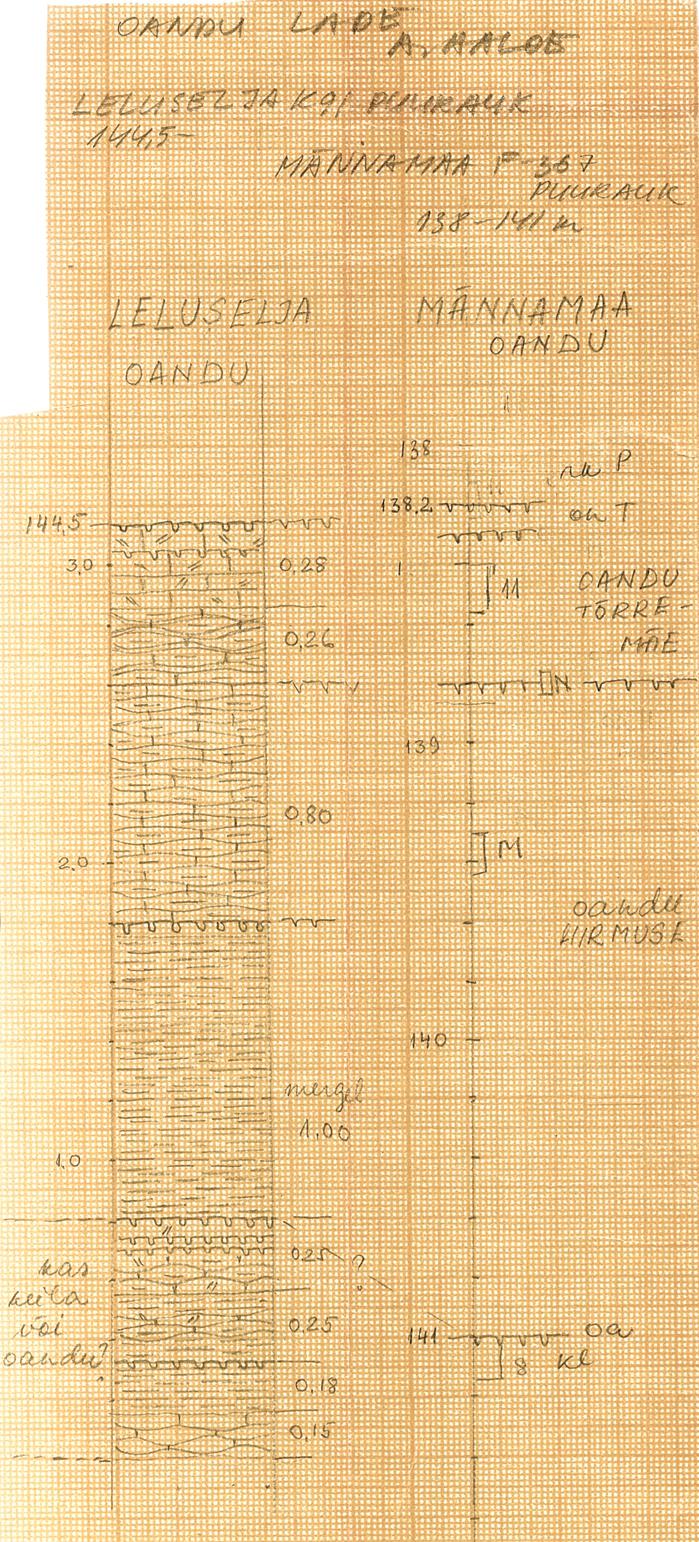 OANDU LADE
A. AALOE
LELUSELJA K91 PUURAUK
144,5-
MÄNNAMAA F-367
PUURAUK
138-141 m
LELUSELJA
OANDU
MÄNNAMAA
OANDU
138
rk P
138,2
on T
144,5
3,0
0,28
11
OANDU
TÕRRE-
MÄE
0,26
N
139
0,80
2,0
M
oandu
HIRMUSE
140
mergel
1,00
1,0
kas
keila
või
oandu?
0,25
?
0,25
141
oa
kl
8
0,18
0,15